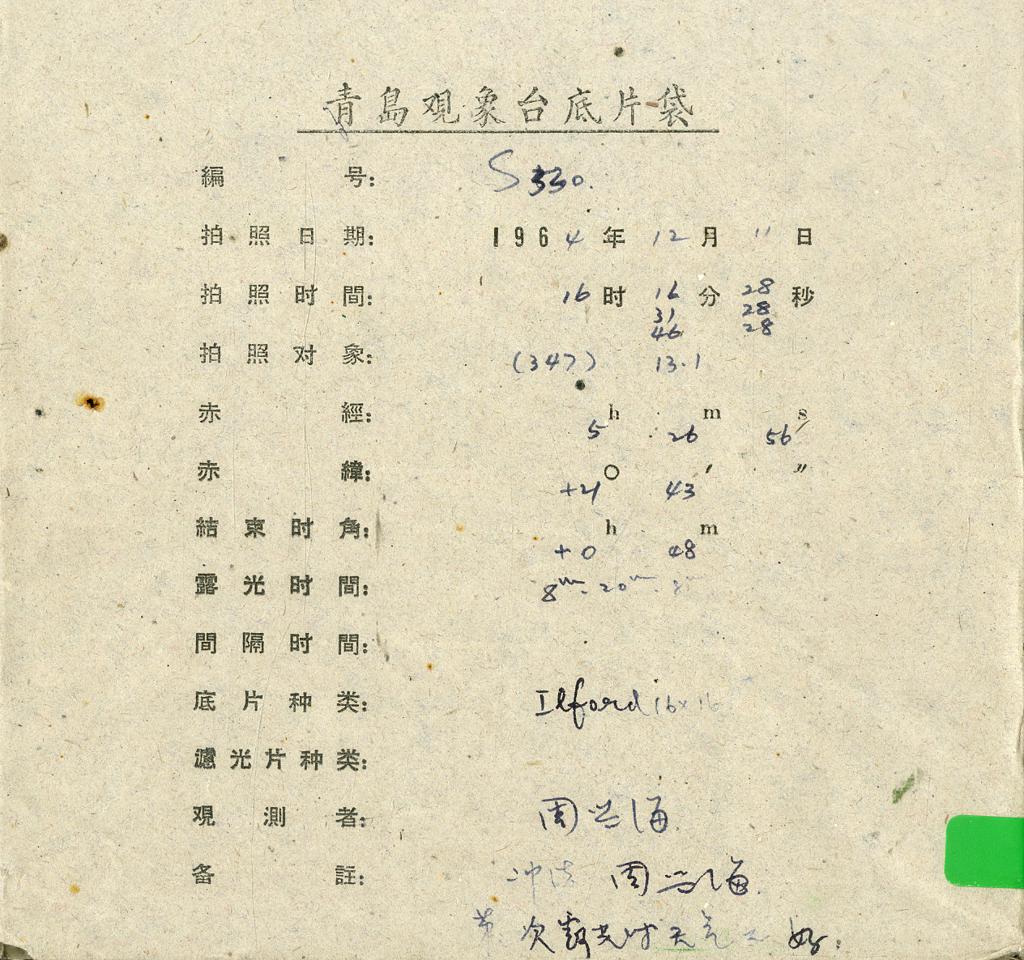 青島观象台底片袋
編号: S 330.
拍照日期: 1964年12月11日
拍照时間: 16时16分28秒
31 28
46 28
拍照对象: (347) 13.1
赤經: 5h 26m 56s
赤緯: +21° 43′ ″
結束时角: +0h 48m
露光时間: 8m. 20m. 8m
間隔时間:
底片种类: Ilford 16×16
濾光片种类:
观測者: 周兴海
备註: 冲洗 周兴海.
次露光时天气 好.